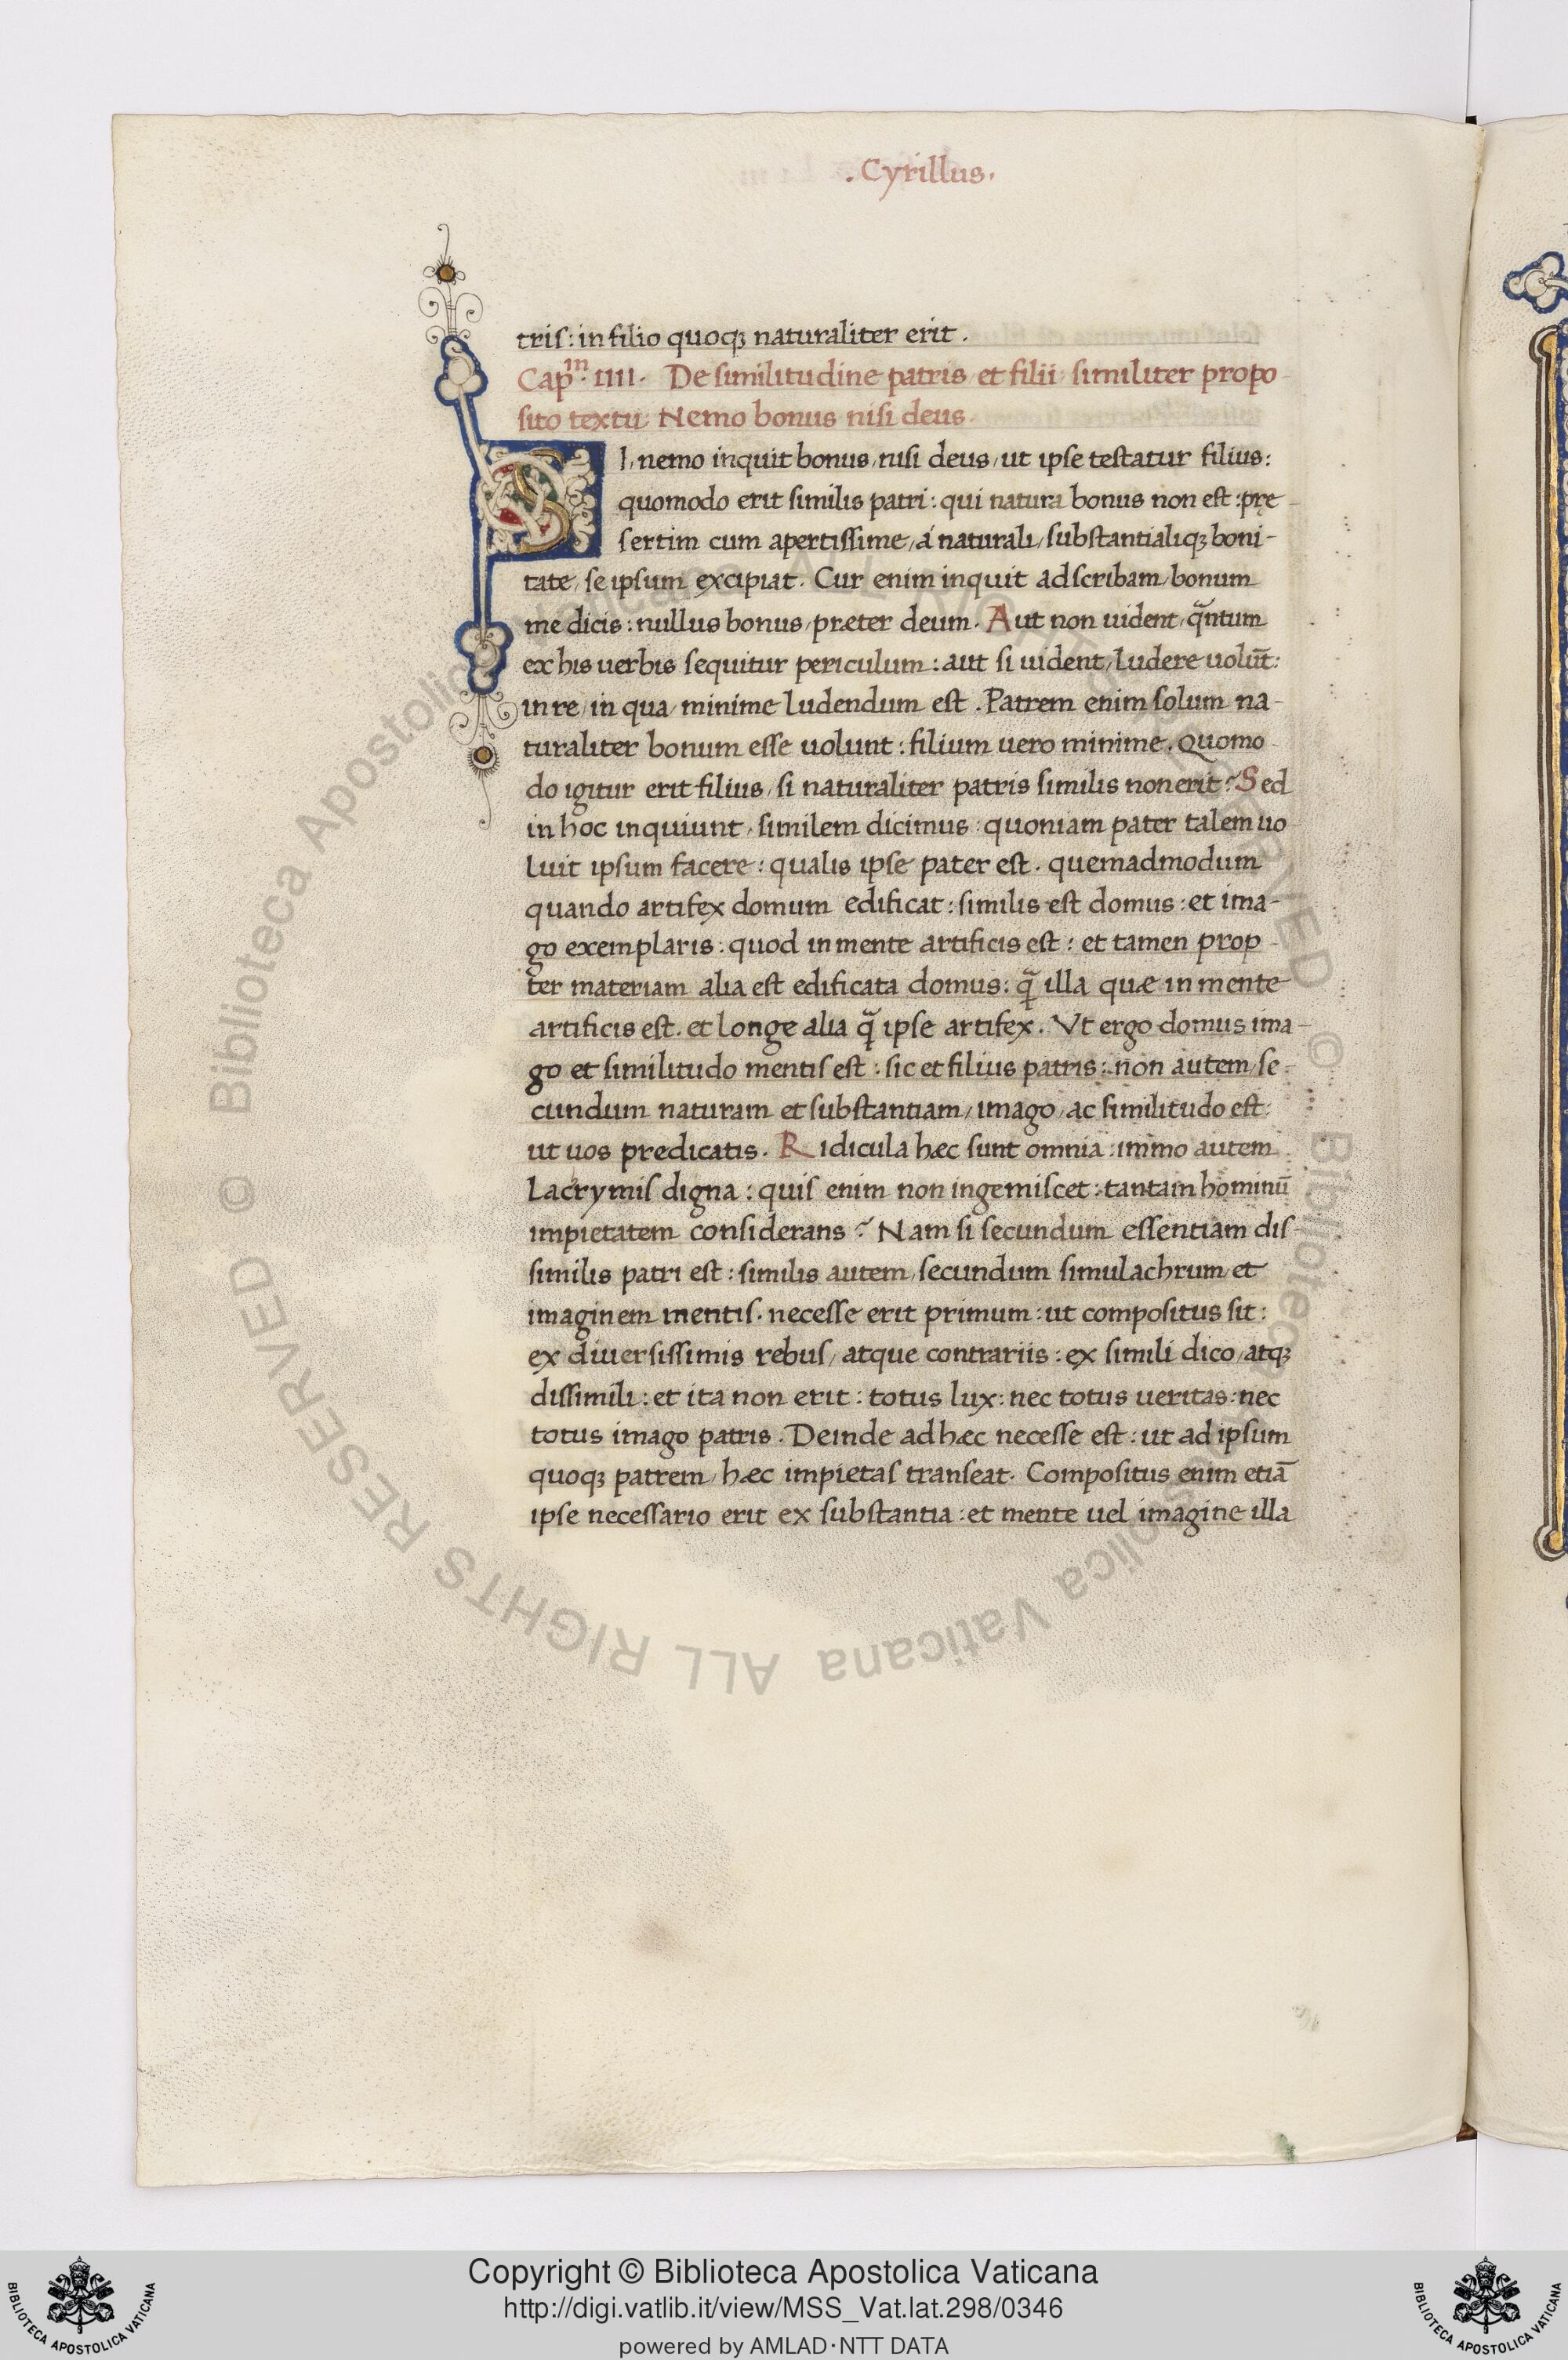 . Cyrillus .
tris : in filio quoqꝫ naturaliter erit .
Cap^m . IIII . De similitudine patris et filii similiter propo-
sito textu Nemo bonus nisi deus .
SI, nemo inquit bonus, nisi deus, ut ipse testatur filius :
quomodo erit similis patri : qui natura bonus non est : prę-
sertim cum apertissime, á naturali, substantialiqꝫ boni-
tate, se ipsum excipiat . Cur enim inquit adscribam, bonum
me dicis : nullus bonus, preter deum . Aut non uident, q̃ntum
ex his uerbis sequitur periculum : aut si uident, ludere uolūt :
in re, in qua, minime ludendum est . Patrem enim solum na-
turaliter bonum esse uolunt : filium uero minime . Quomo-
do igitur erit filius, si naturaliter patris similis non erit ? Sed
in hoc inquiunt, similem dicimus : quoniam pater talem uo
luit ipsum facere : qualis ipse pater est . quemadmodum
quando artifex domum edificat : similis est domus : et ima-
go exemplaris : quod in mente artificis est : et tamen prop-
ter materiam alia est edificata domus : q̃ illa quæ in mente
artificis est . et longe alia q̃ ipse artifex . Vt ergo domus ima-
go et similitudo mentis est : sic et filius patris : non autem, se-
cundum naturam et substantiam, imago, ac similitudo est :
ut uos predicatis . Ridicula hæc sunt omnia : immo autem
lacrymis digna : quis enim non ingemiscet : tantam hominū
impietatem considerans ? Nam si secundum essentiam dis-
similis patri est : similis autem, secundum simulachrum, et
imaginem mentis . necesse erit primum : ut compositus sit :
ex diuersissimis rebus, atque contrariis : ex simili dico, atqꝫ
dissimili : et ita non erit : totus lux : nec totus ueritas : nec
totus imago patris . Deinde ad hæc necesse est : ut ad ipsum
quoqꝫ patrem, hæc impietas transeat . Compositus enim etiā
ipse necessario erit ex substantia : et mente uel imagine illa
© Biblioteca Apostolica Vaticana ALL RIGHTS RESERVED © Biblioteca Apostolica Vaticana ALL RIGHTS RESERVED
Copyright © Biblioteca Apostolica Vaticana
http://digi.vatlib.it/view/MSS_Vat.lat.298/0346
powered by AMLAD·NTT DATA
BIBLIOTECA APOSTOLICA VATICANA
BIBLIOTECA APOSTOLICA VATICANA